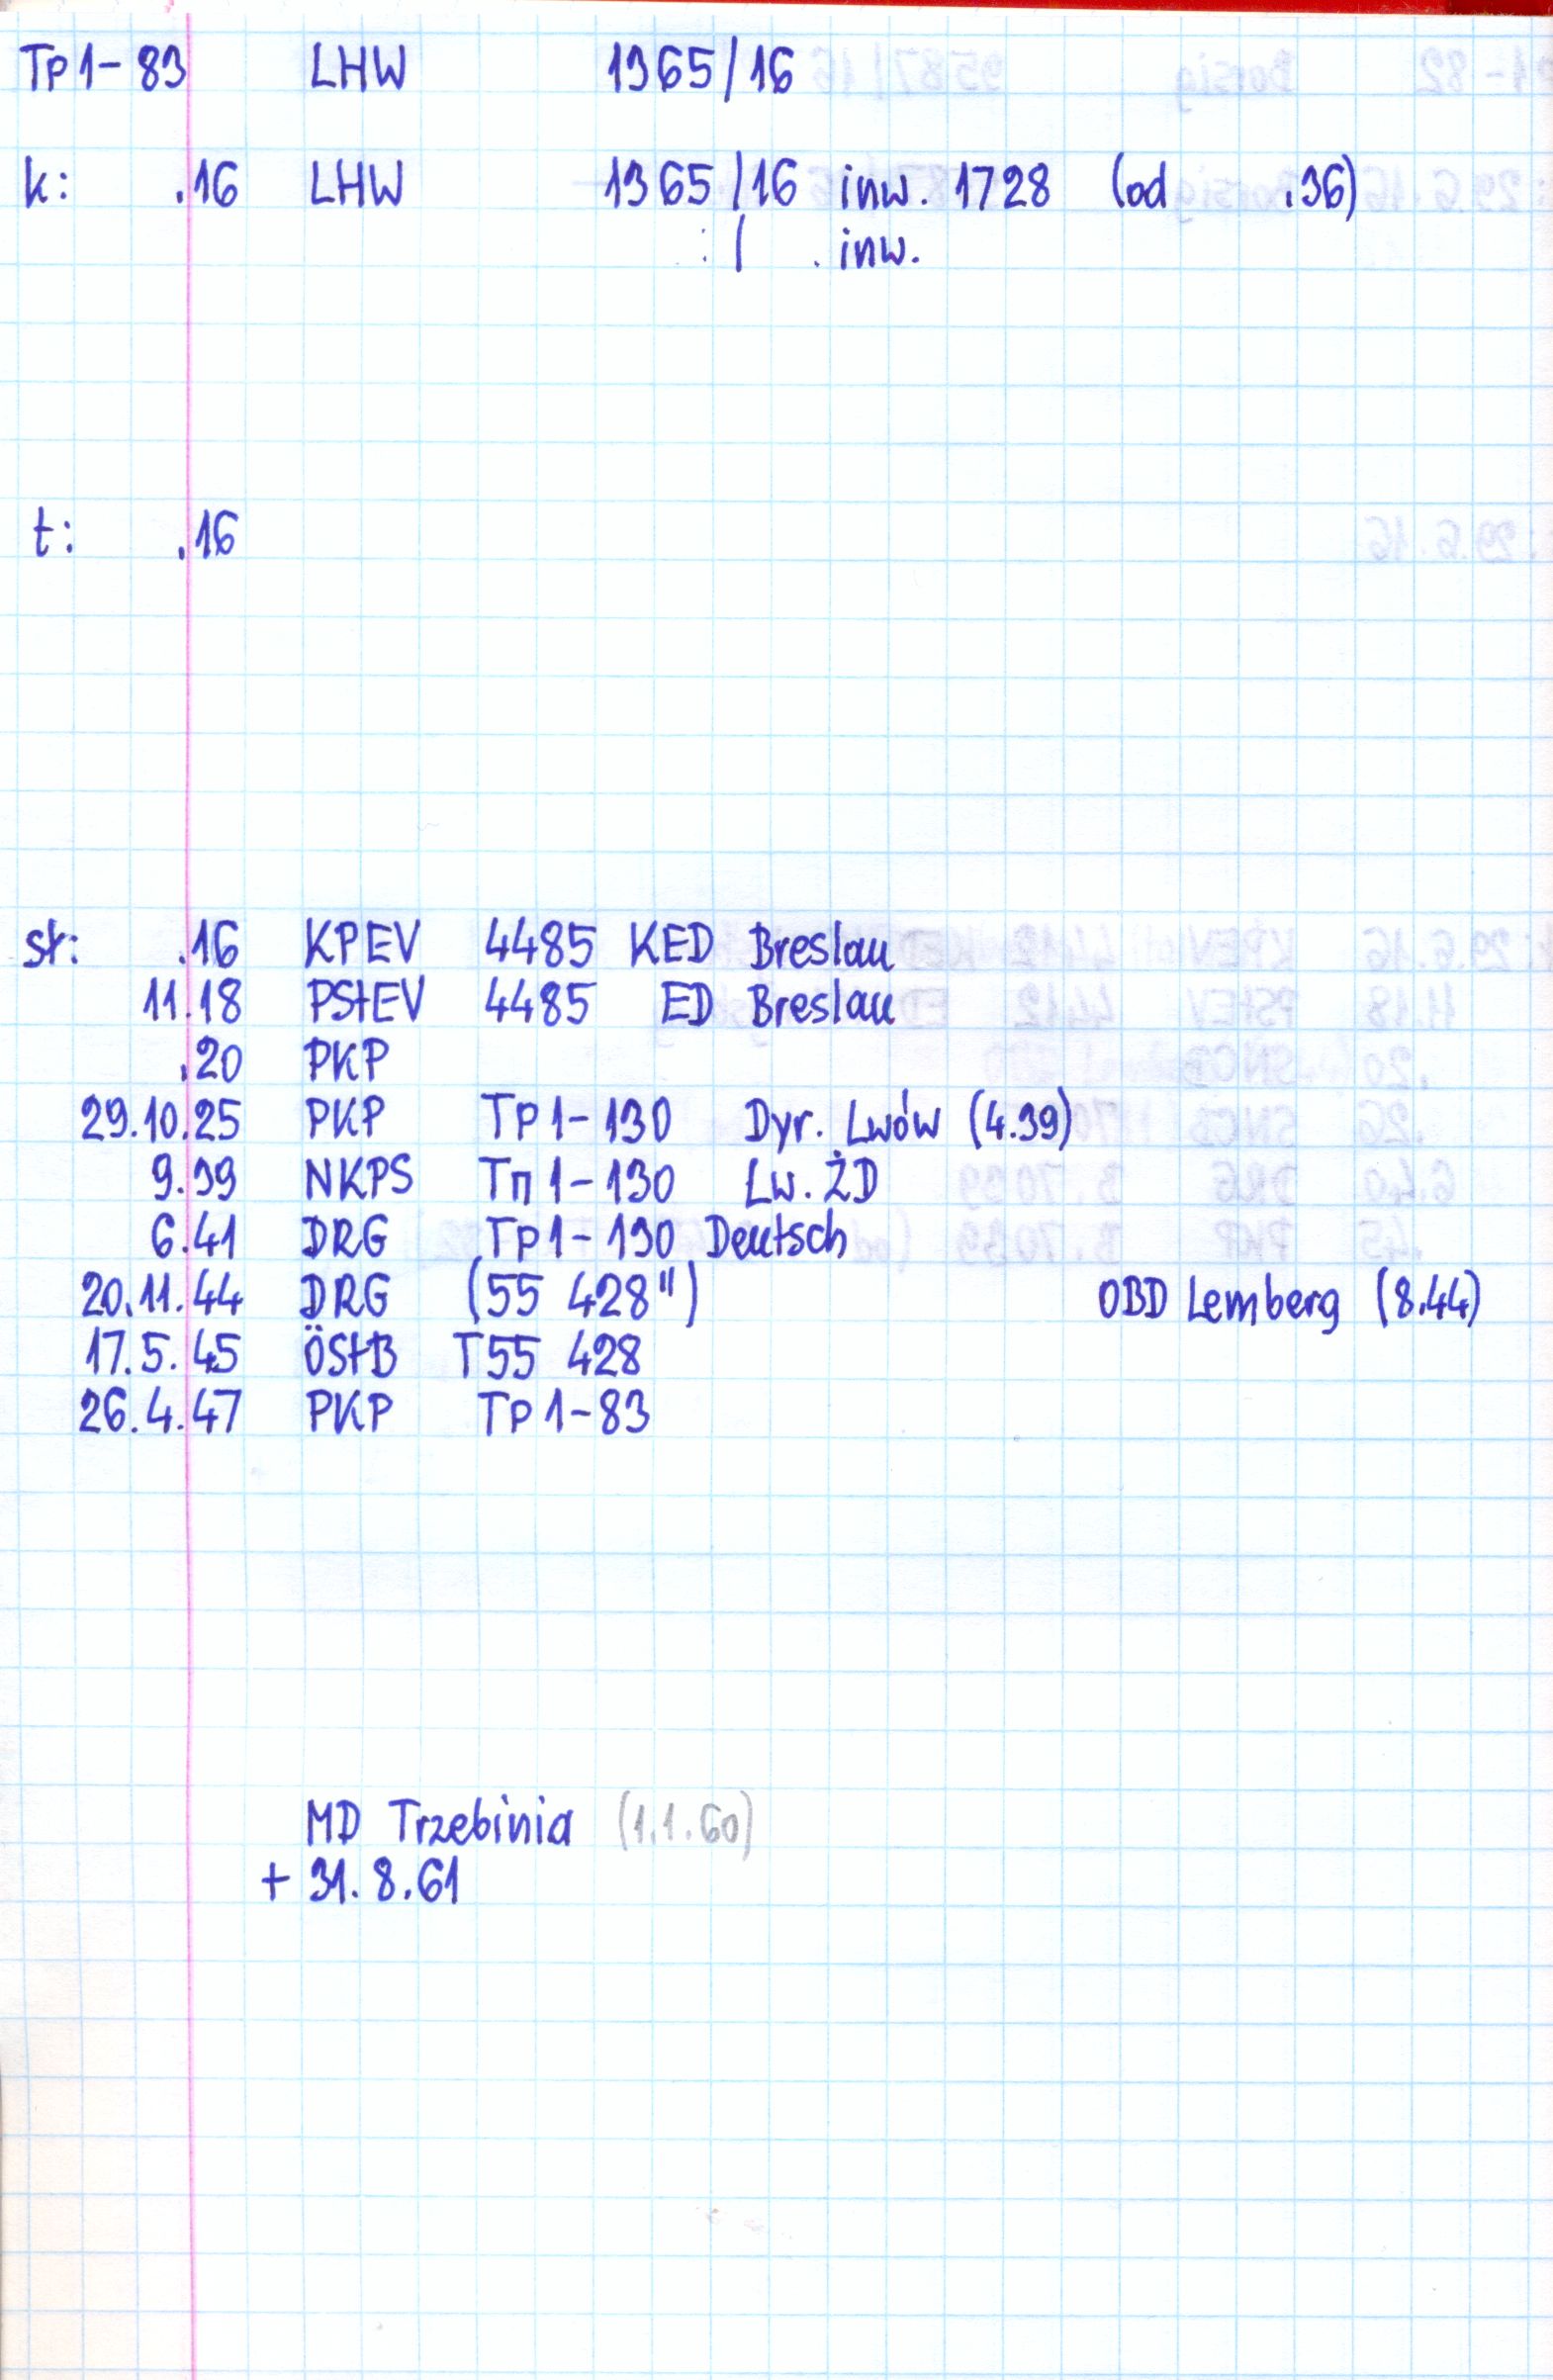 Tp1-83 LHW 1365/16
k: .16 LHW 1365/16 inw. 1728 (od .36)
. / . inw.
t: .16
st: .16 KPEV 4485 KED Breslau
11.18 PStEV 4485 ED Breslau
.20 PKP
29.10.25 PKP Tp1-130 Dyr. Lwów (4.39)
9.39 NKPS Тп1-130 Lw. ŻD
6.41 DRG Tp1-130 Deutsch
20.11.44 DRG (55 428") OBD Lemberg (8.44)
17.5.45 ÖStB T55 428
26.4.47 PKP Tp1-83
MD Trzebinia (1.1.60)
+ 31.8.61